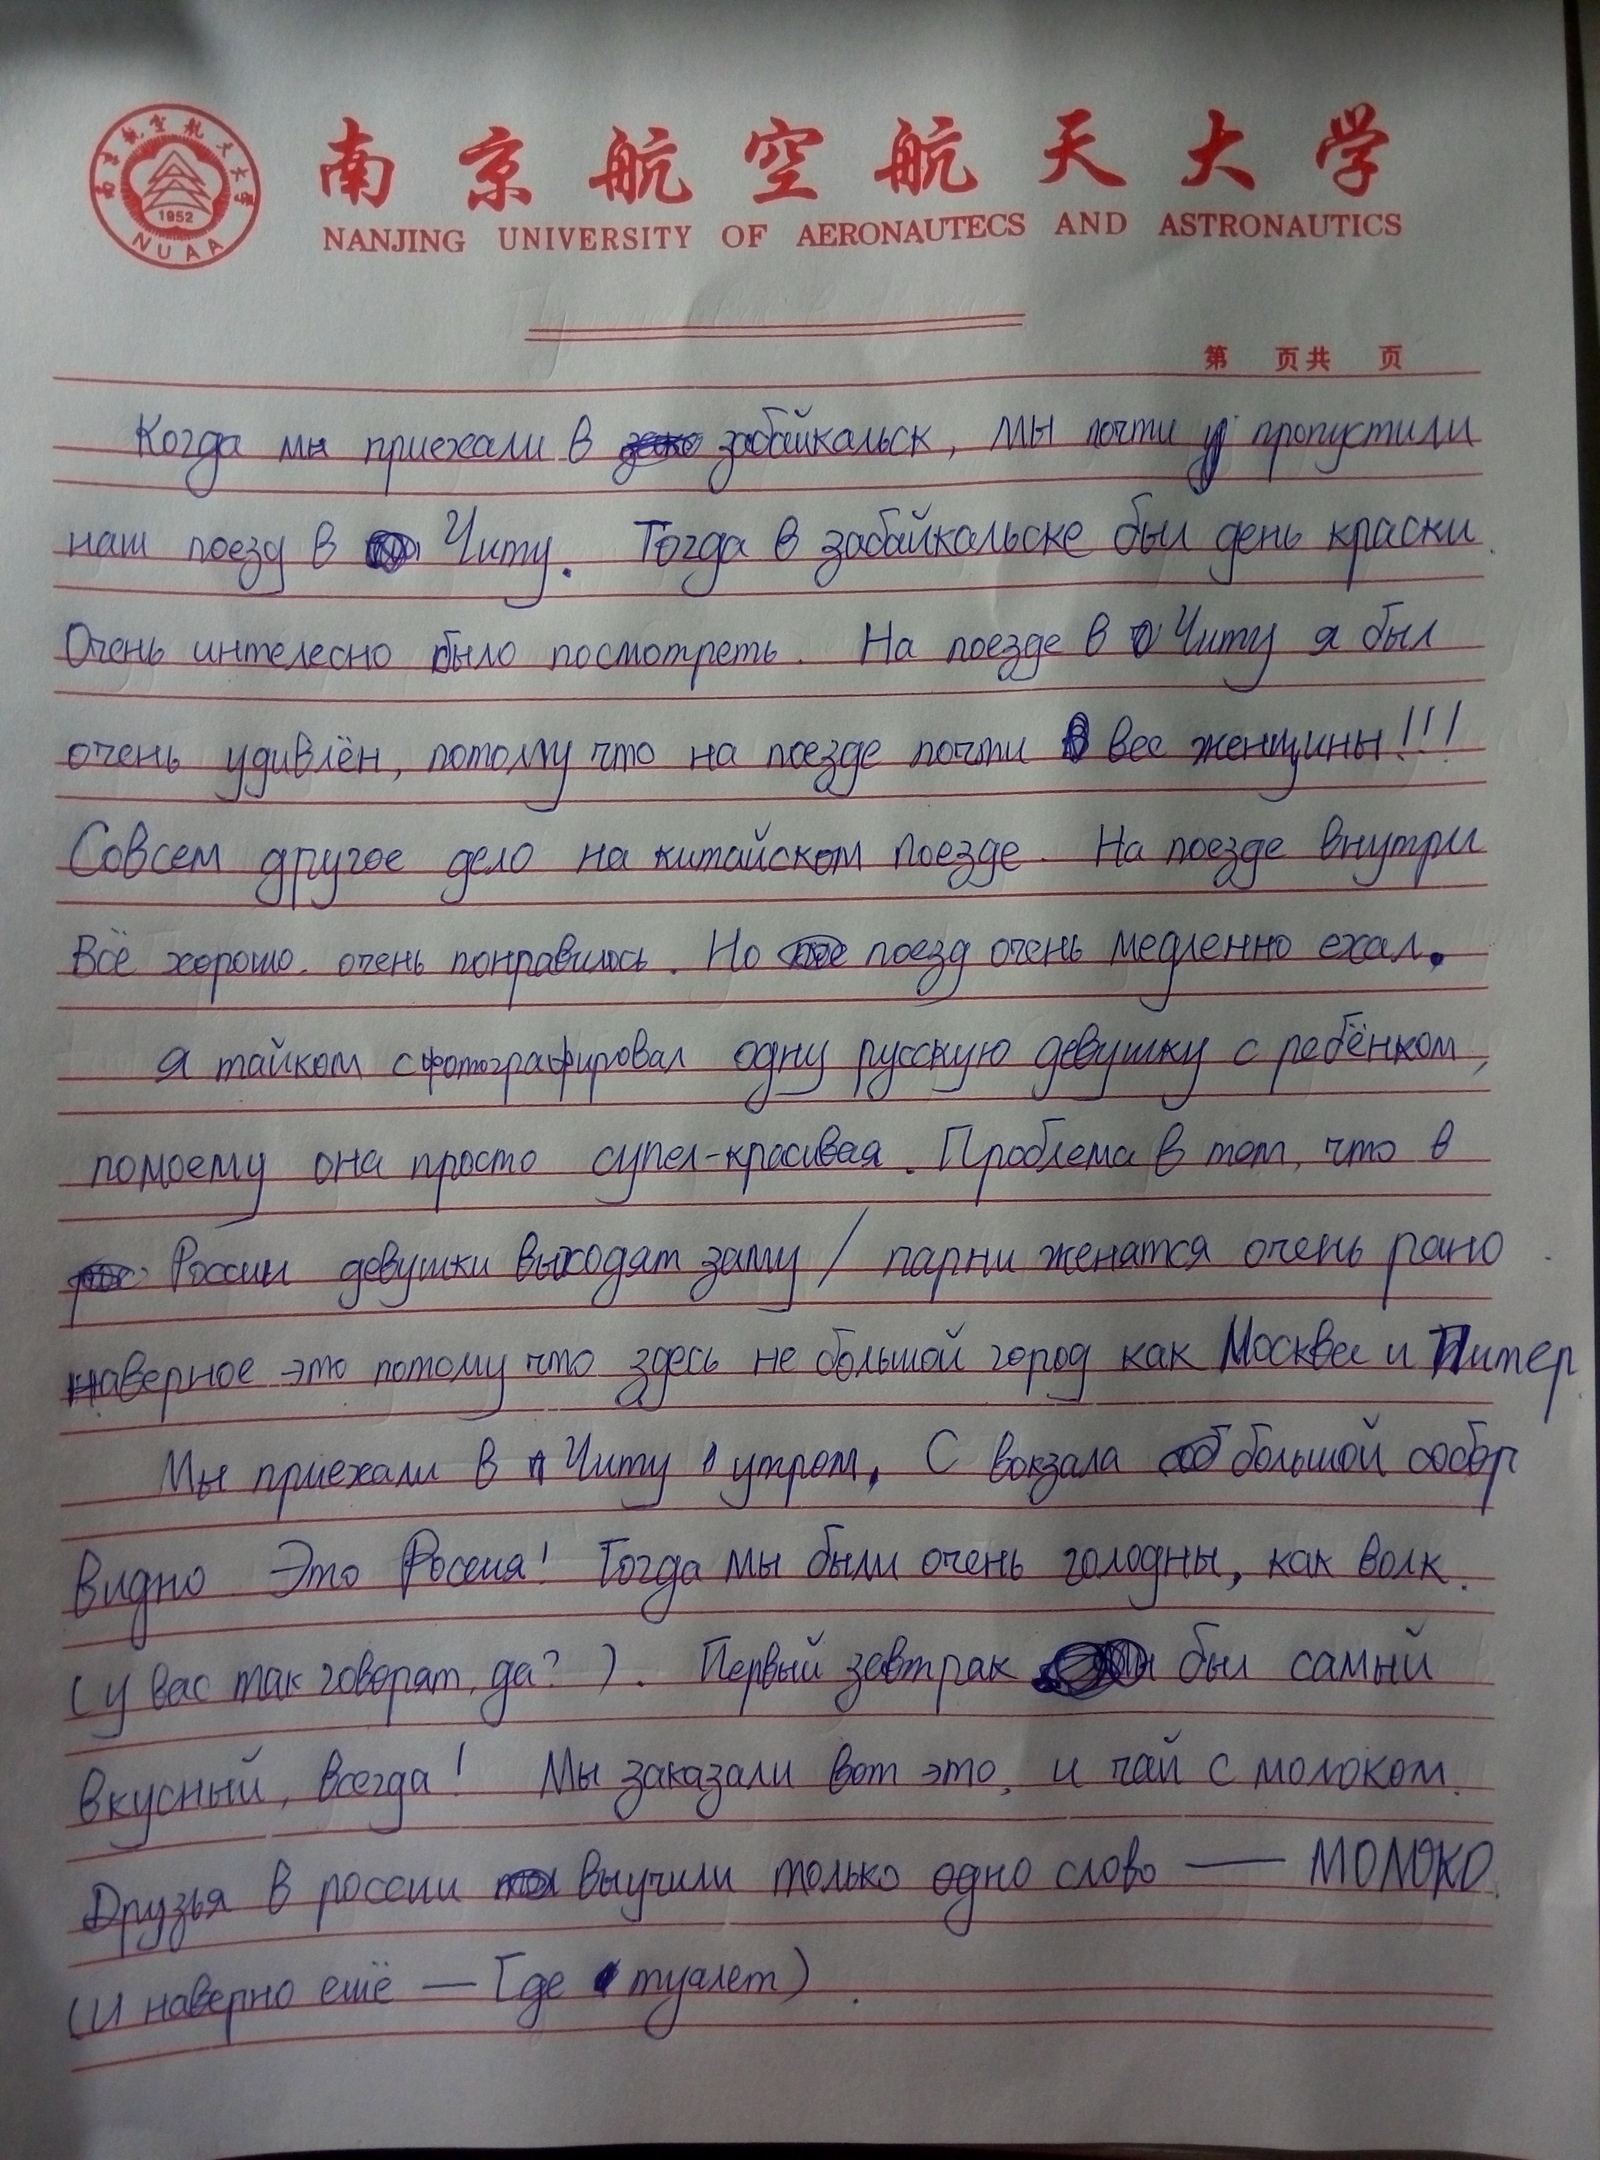 南京航空航天大学
NANJING UNIVERSITY OF AERONAUTECS AND ASTRONAUTICS
1952
NUAA
第 页共 页
Когда мы приехали в забайкальск, мы почти пропустили
наш поезд в Читу. Тогда в забайкальске был день краски.
Очень интелесно было посмотреть. На поезде в Читу я был
очень удивлён, потому что на поезде почти все женщины!!!
Совсем другое дело на китайском поезде. На поезде внутри
Всё хорошо. очень понравилось. Но поезд очень медленно ехал.
я тайком сфотографировал одну русскую девушку с ребёнком,
помоему она просто супел-красивая. Проблема в том, что в
России девушки выходят заму / парни женатся очень рано.
наверное это потому что здесь не большой город как Москва и Питер.
Мы приехали в Читу утром. С вокзала большой собор
видно Это Россия! Тогда мы были очень голодны, как волк.
(у вас так говорят, да? ). Первый завтрак был самый
вкусный, всегда! Мы заказали вот это, и чай с молоком.
Друзья в россии выучили только одно слово — МОЛОКО.
(И наверно ешё — Где туалет) .